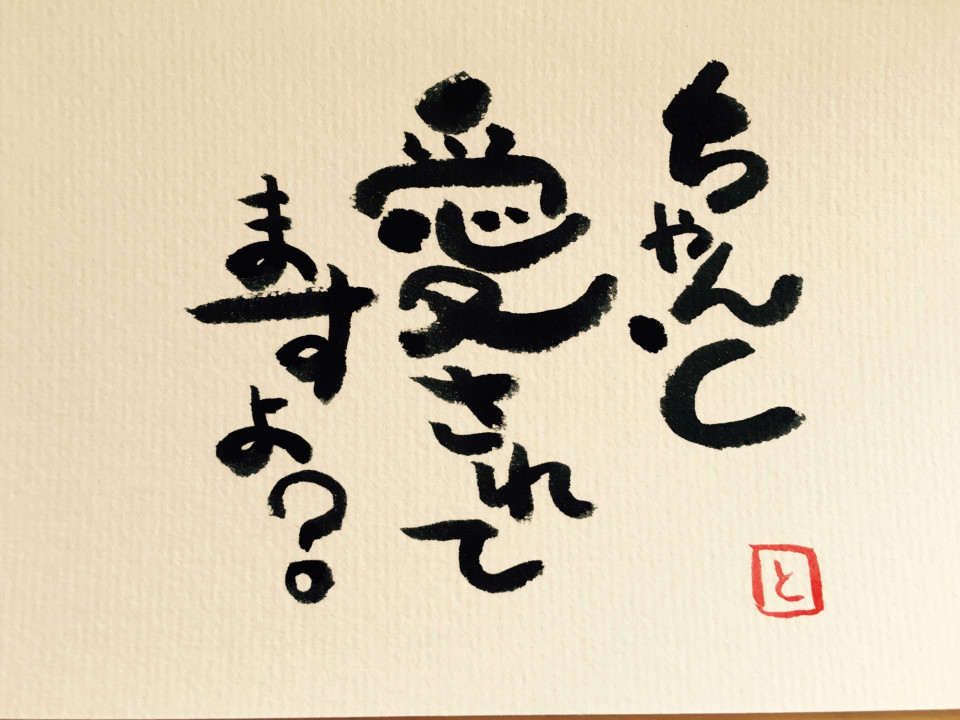 ちゃんと
愛されて
ますよ？
と